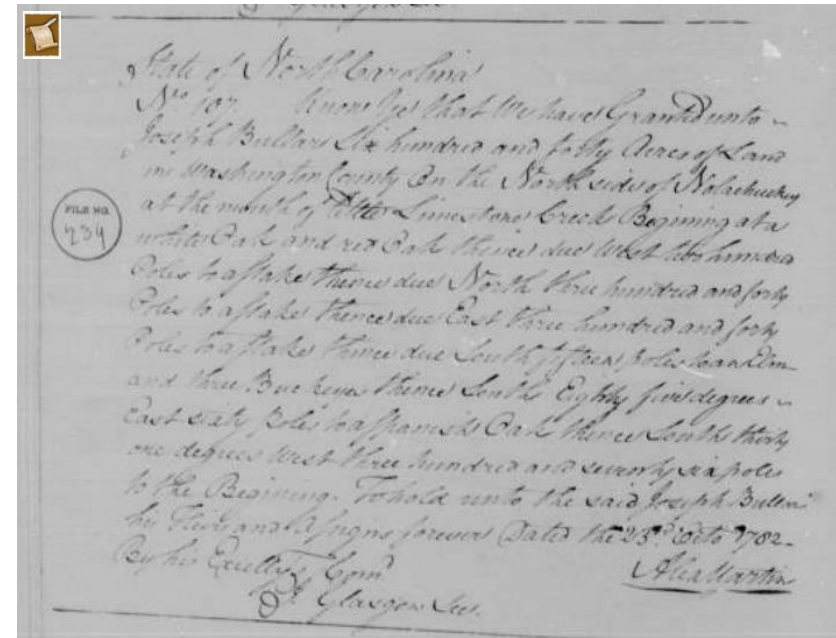 J. Glasgow Sec.
State of North Carolina
No. 107 Know Ye that We have Granted unto
Joseph Bullar Six hundred and forty Acres of Land
in Washington County On the North side of Nolachuckey
at the mouth of little Limestone Creek Begining at a
white Oak and red Oak thence due West two hundred
Poles to a stake thence due North three hundred and forty
Poles to a stake thence due East three hundred and forty
Poles to a stake thence due South fifteen poles to an Elm
and three Buckeyes thence South Eighty five degrees
East sixty poles to a spanish Oak thence South thirty
one degrees West three hundred and seventy six poles
to the Begining. To hold unto the said Joseph Bullar
his Heirs and Assigns forever Dated the 23d Octo 1782
By his Excellys Comd Alex Martin
J. Glasgow Sec.
FILE NO.
234